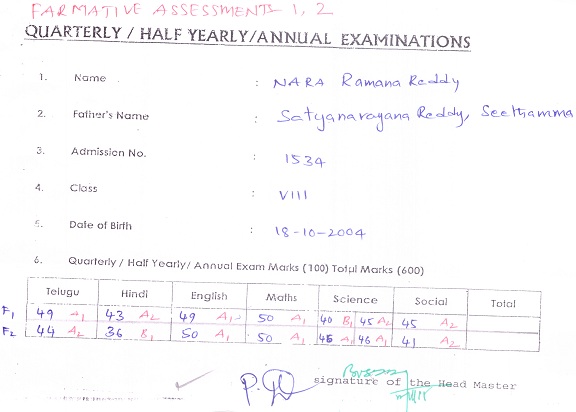 FARMATIVE ASSESSMENTS 1, 2
QUARTERLY / HALF YEARLY/ANNUAL EXAMINATIONS
1. Name : NARA Ramana Reddy
2. Father's Name : Satyanarayana Reddy, Seethamma
3. Admission No. : 1534
4. Class : VIII
5. Date of Birth : 18-10-2004
6. Quarterly / Half Yearly/ Annual Exam Marks (100) Total Marks (600)
Telugu Hindi English Maths Science Social Total
F1 49 A1 43 A2 49 A1 50 A1 40 B1 45 A2 45 A2
F2 44 A2 36 B1 50 A1 50 A1 45 A1 46 A1 41 A2
signature of the Head Master